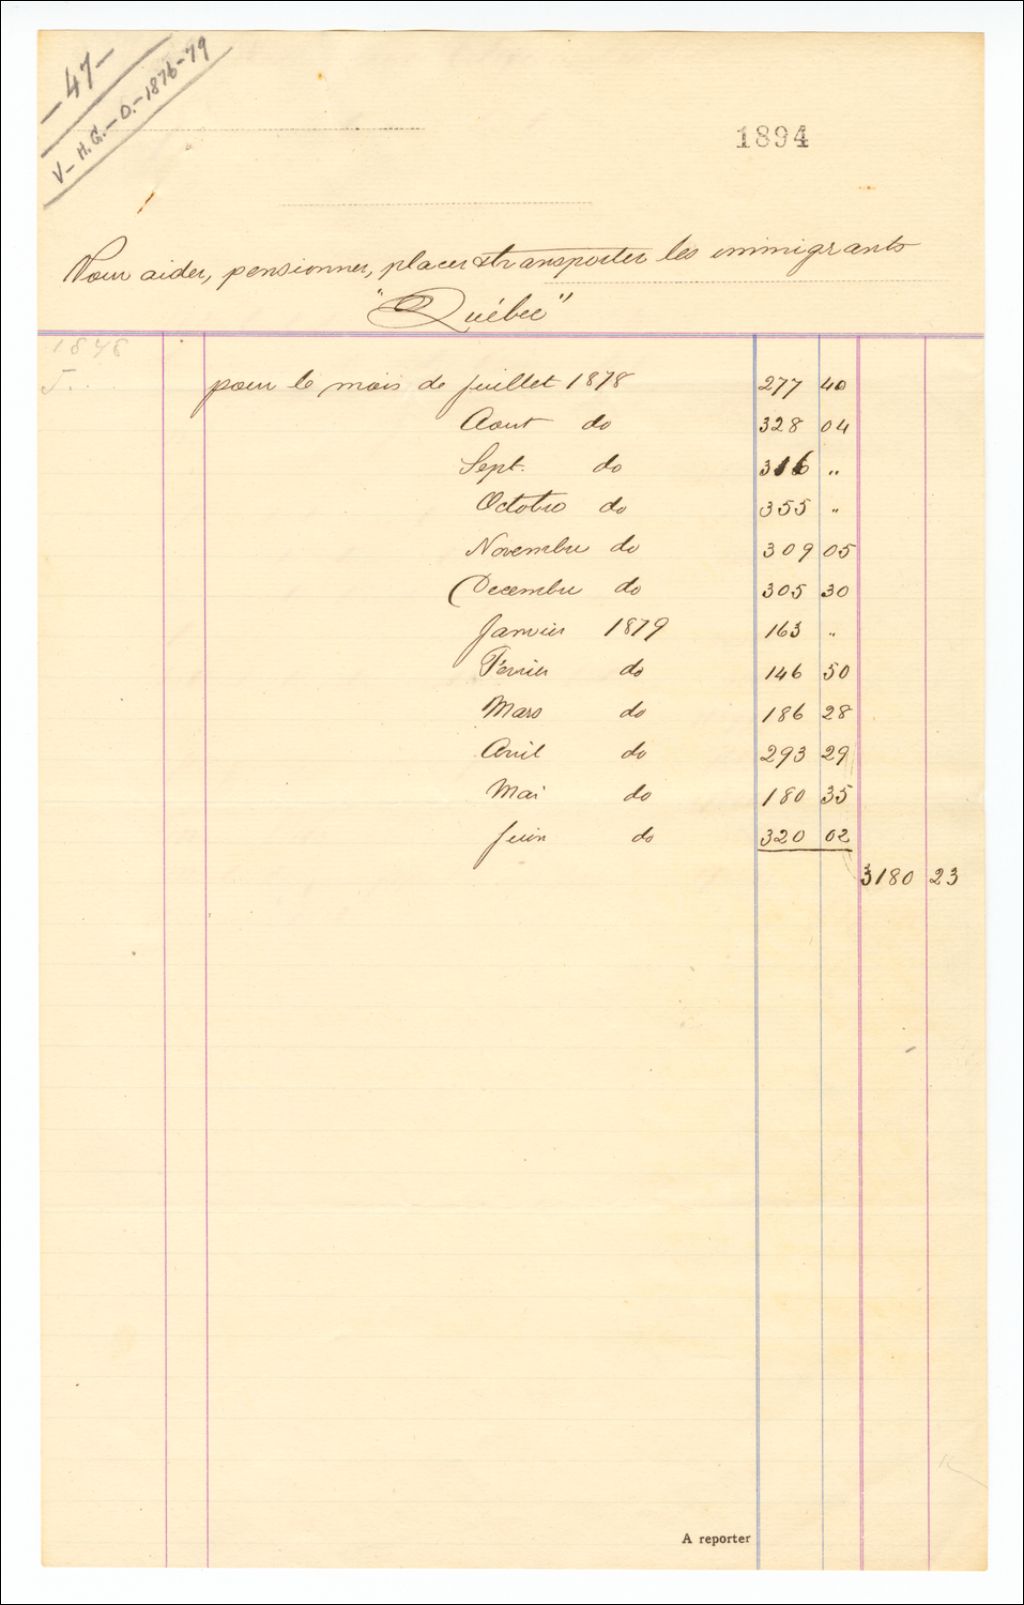 -47-
V-H.G.-O.-1876-79
1894
Pour aider, pensionner, placer & transporter les immigrants
"Québec"
1878
pour le mois de juillet 1878 277 40
Aout do 328 04
Sept. do 316 "
Octobre do 355 "
Novembre do 309 05
Decembre do 305 30
Janvier 1879 163 "
Fevrier do 146 50
Mars do 186 28
Avril do 293 29
Mai do 180 35
Juin do 320 02
3180 23
A reporter